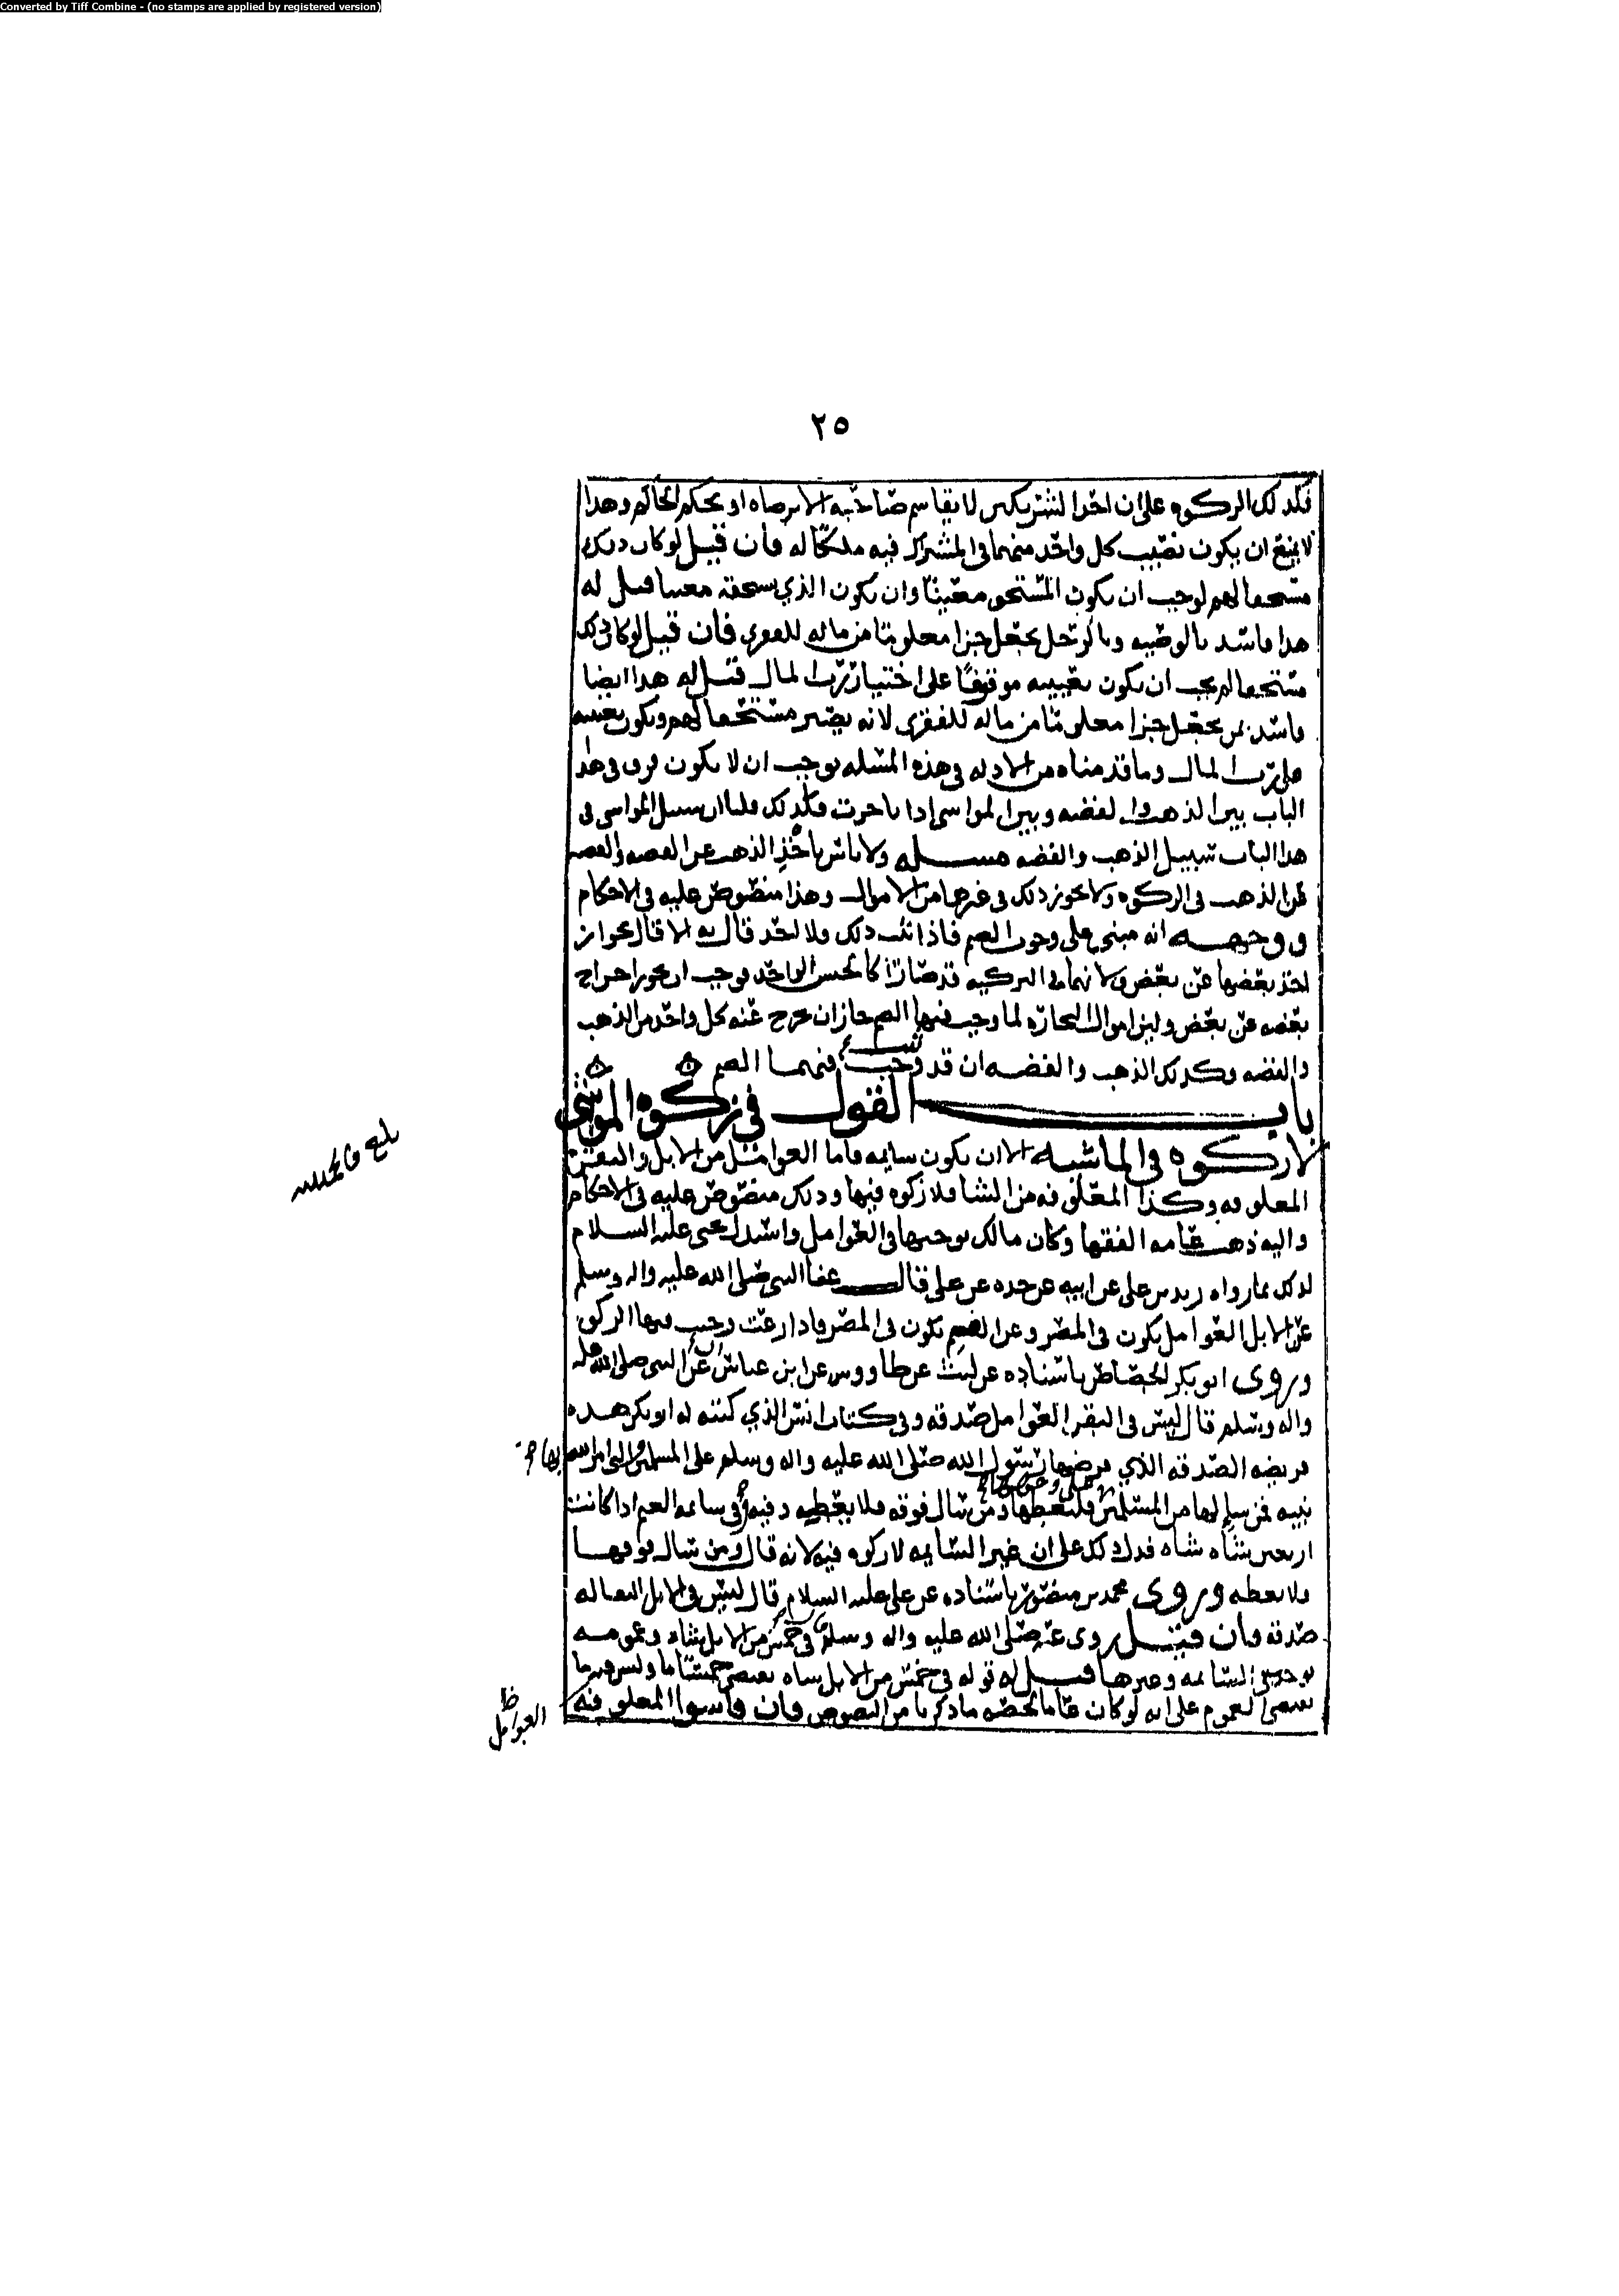 Converted by Tiff Combine - (no stamps are applied by registered version)
٢٥
فكذلك الزكوة على ان احد الشريكين لا يقاسم صاحبه الا برضاه او بحكم الحاكم وهذا
لا يمنع ان يكون نصيب كل واحد منهما في المشترك فيه ملكا له فان قيل لو كان ذلك
مستحقا لهم لوجب ان يكون المستحق معينا وان يكون الذي يستحقه معينا قيل له
هذا فاسد بالوصية وبالرجل يجعل جزا معلوما من ماله للفقرى فان قيل لو كان ذلك
مستحقا لم يجب ان يكون تعيينه موقوفا على اختيار رب المال قيل له هذا ايضا
فاسد بمن يجعل جزا معلوما من ماله للفقرى لانه يصير مستحقا لهم ويكون تعيينه
على رب المال وما قدمناه من الادله في هذه المسله يوجب ان لا يكون فرق في هذا
الباب بين الذهب والفضه وبين المواسى اذا تاخرت فكذلك قلنا ان سبيل المواسى في
هذا الباب سبيل الذهب والفضه مسله ولا باس باخذ الذهب عن الفضه والفضه
عن الذهب في الزكوة ولا يجوز ذلك في غيرها من الاموال وهذا منصوص عليه في الاحكام
ووجهه انه مبنى على وجوب الضم فاذا ثبت ذلك فلا احد قال به الا قال بجواز
اخذ بعضها عن بعض ولانهما في التزكيه قد صارا كالجنس الواحد فوجب ان يجوز اخراج
بعضه عن بعض ولان اموال التجاره لما وجب فيها الضم جاز ان يخرج عنه كل واحد من الذهب
والفضه وكذلك الذهب والفضه ان قد وجب فيهما الضم
باب القول في زكوة المواشى
لا زكوة في الماشيه الا ان يكون سايمه فاما العوامل من الابل والبقر
المعلوفه وكذا المعلوفه من الشا فلا زكوة فيها وذلك منصوص عليه في الاحكام
واليه ذهب عامه الفقها وكان مالك يوجبها في العوامل واستدل يحيى عليه السلام
لذلك بما رواه زيد بن على عن ابيه عن جده عن على قال عفا النبى صلى الله عليه واله وسلم
عن الابل العوامل يكون في المصر وعن الغنم يكون في المصر فاذا رعت وجب فيها الزكوة
وروى ابو بكر الجصاص باسناده عن ليث عن طاووس عن ابن عباس عن النبى صلى الله عليه
واله وسلم قال ليس في البقر العوامل صدقه وفي كتاب انس الذي كتبه له ابو بكر هذه
فريضه الصدقه الذي فرضها رسول الله صلى الله عليه واله وسلم على المسلمين والتى امر الله بها
نبيه فمن سيلها من المسلمين على وجهها فليعطها ومن سال فوقه فلا يعطيه وفيه في سايمه الغنم اذا كانت
اربعين شاه شاه فدل ذلك على ان غير السايمه لا زكوة فيه لانه قال ومن سال فوقها
فلا يعطه وروى محمد بن منصور باسناده عن على عليه السلام قال ليس في الابل العماله
صدقه فان قيل روى عنه صلى الله عليه واله وسلم في خمس من الابل شاه وعمومه
يوجب السايمه وغيرها قيل له قوله في خمس من الابل شاه يقتضى خمسا ما وليس فيه ما
يقتضى العموم على انه لو كان عاما لخصه ما ذكرنا من النصوص فان قاسوا المعلوفه
العوامل